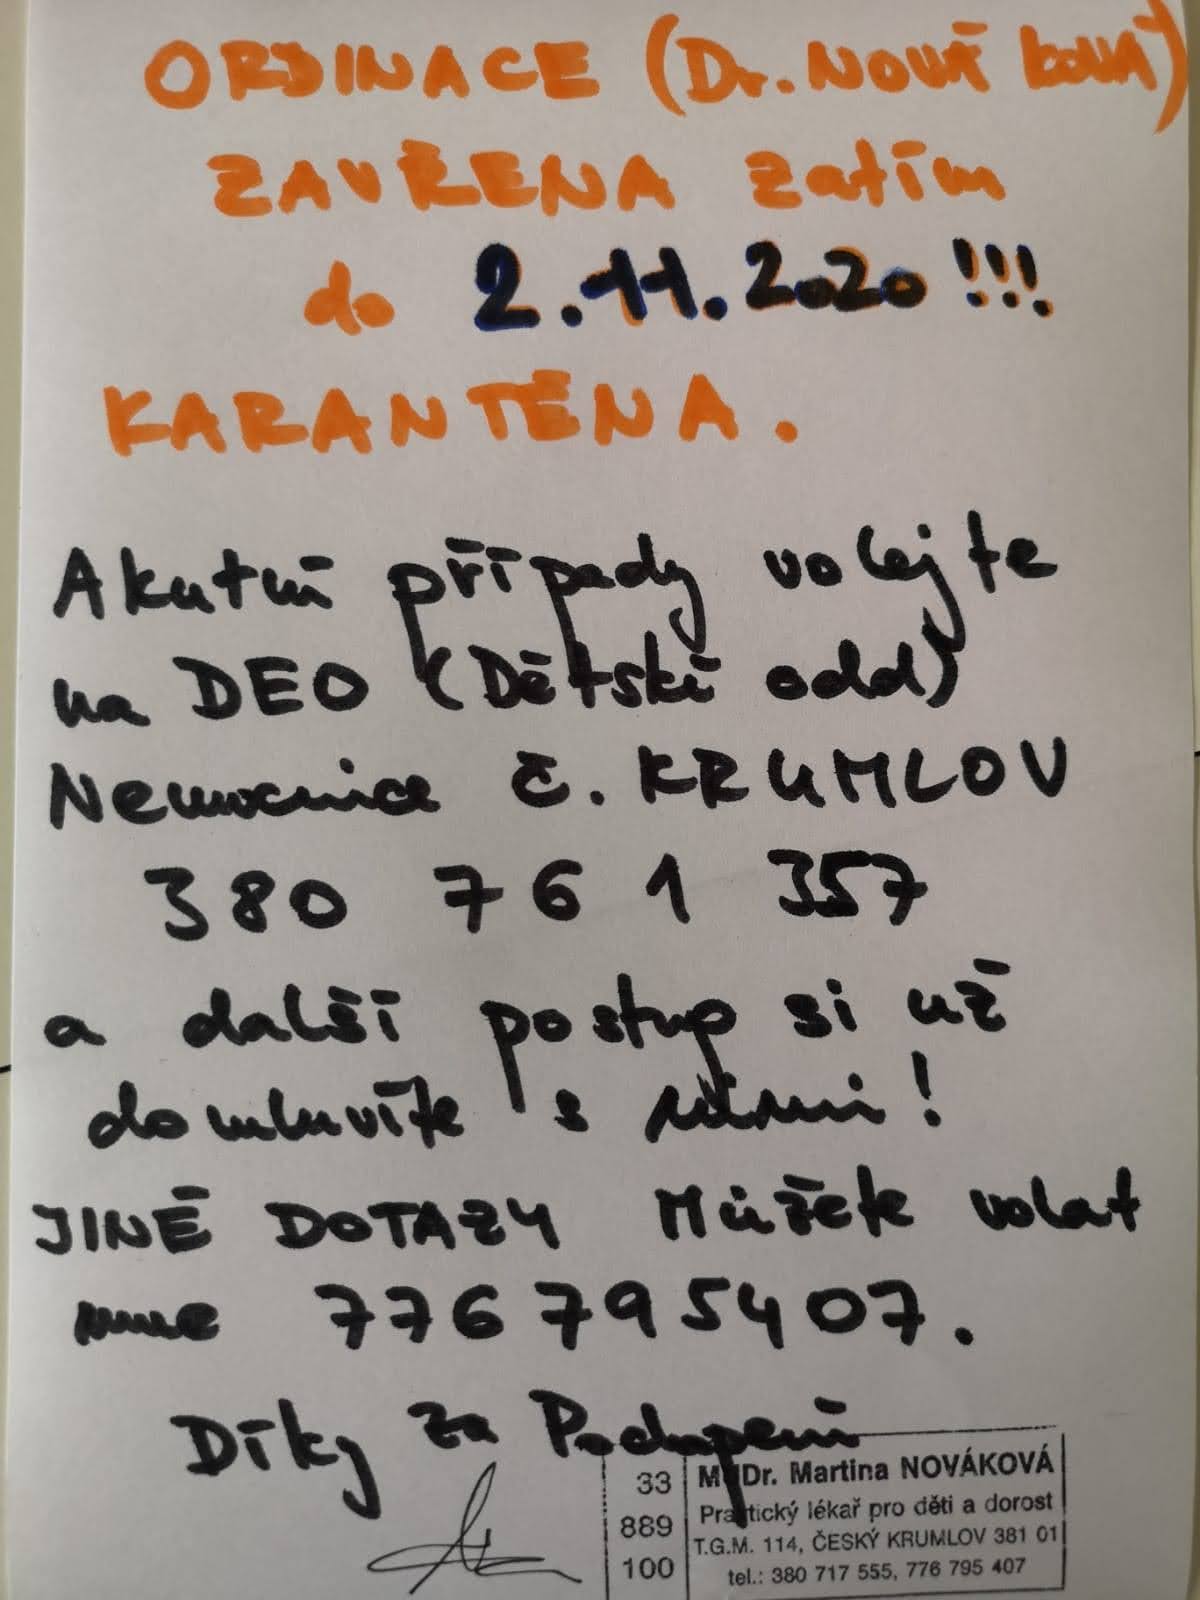 ORDINACE (Dr. NOVÁKOVÁ)
ZAVŘENA zatím
do 2.11.2020 !!!
KARANTÉNA.
Akutní případy volejte
na DEO (Dětské odd)
Nemocnice Č. KRUMLOV
380 761 357
a další postup si už
domluvíte s nimi!
JINÉ DOTAZY Můžete volat
mne 776 795 407.
Díky za Pochopení
33
889
100
MUDr. Martina NOVÁKOVÁ
Praktický lékař pro děti a dorost
T.G.M. 114, ČESKÝ KRUMLOV 381 01
tel.: 380 717 555, 776 795 407